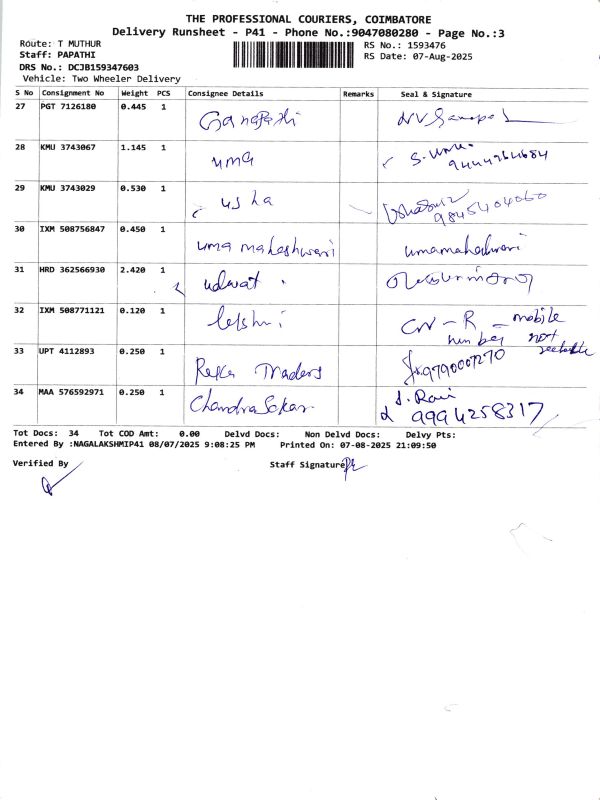 THE PROFESSIONAL COURIERS, COIMBATORE
Delivery Runsheet - P41 - Phone No.:9047080280 - Page No.:3
Route: T MUTHUR RS No.: 1593476
Staff: PAPATHI RS Date: 07-Aug-2025
DRS No.: DCJB159347603
Vehicle: Two Wheeler Delivery
S No Consignment No Weight PCS Consignee Details Remarks Seal & Signature
27 PGT 7126180 0.445 1 Ganapathi
28 KMU 3743067 1.145 1 uma S. Uma
9444264684
29 KMU 3743029 0.530 1 usha
9845404060
30 IXM 508756847 0.450 1 uma maheshwari umamaheshwari
31 HRD 362566930 2.420 1
32 IXM 508771121 0.120 1 CN - R - mobile
number not
33 UPT 4112893 0.250 1 Traders 9790007270
34 MAA 576592971 0.250 1 ChandraSekar J. Ravi
9994258317
Tot Docs: 34 Tot COD Amt: 0.00 Delvd Docs: Non Delvd Docs: Delvy Pts:
Entered By :NAGALAKSHMIP41 08/07/2025 9:08:25 PM Printed On: 07-08-2025 21:09:50
Verified By Staff Signature